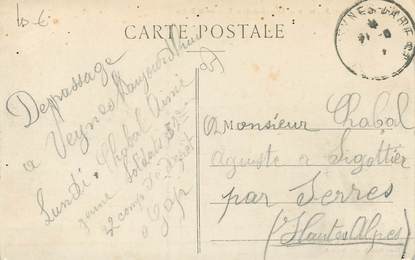 10 €
CARTE POSTALE
Depassage
a Veynes aujourd'hui
Lundi. Chabal Aimé
jeune Soldat
2 comp
a Gap
Monsieur Chabal
aguste a Sigottier
par Serres
(Hautes Alpes)